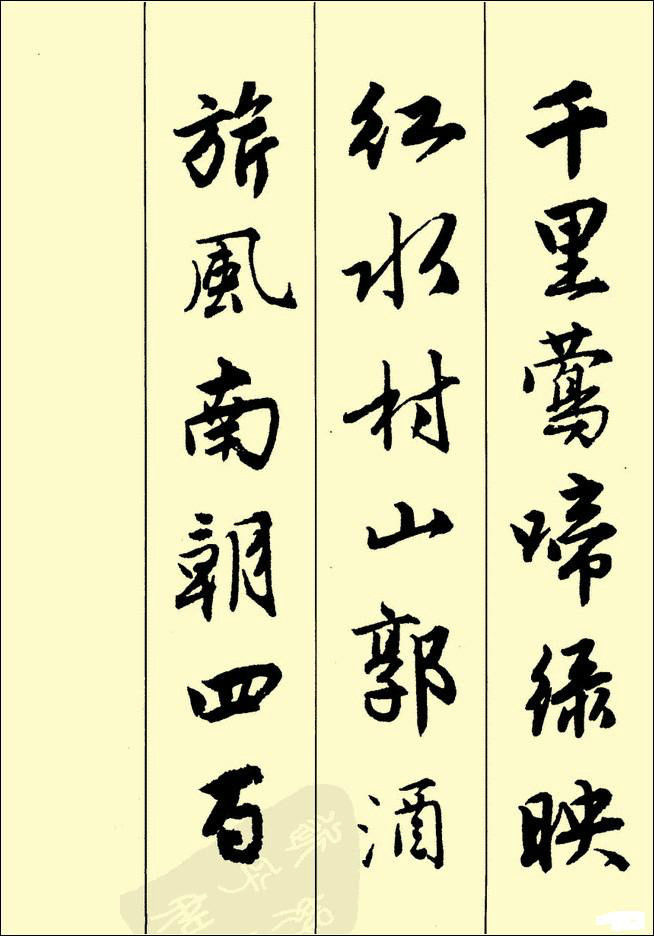 千里鶯啼緑映
红水村山郭酒
旂風南朝四百